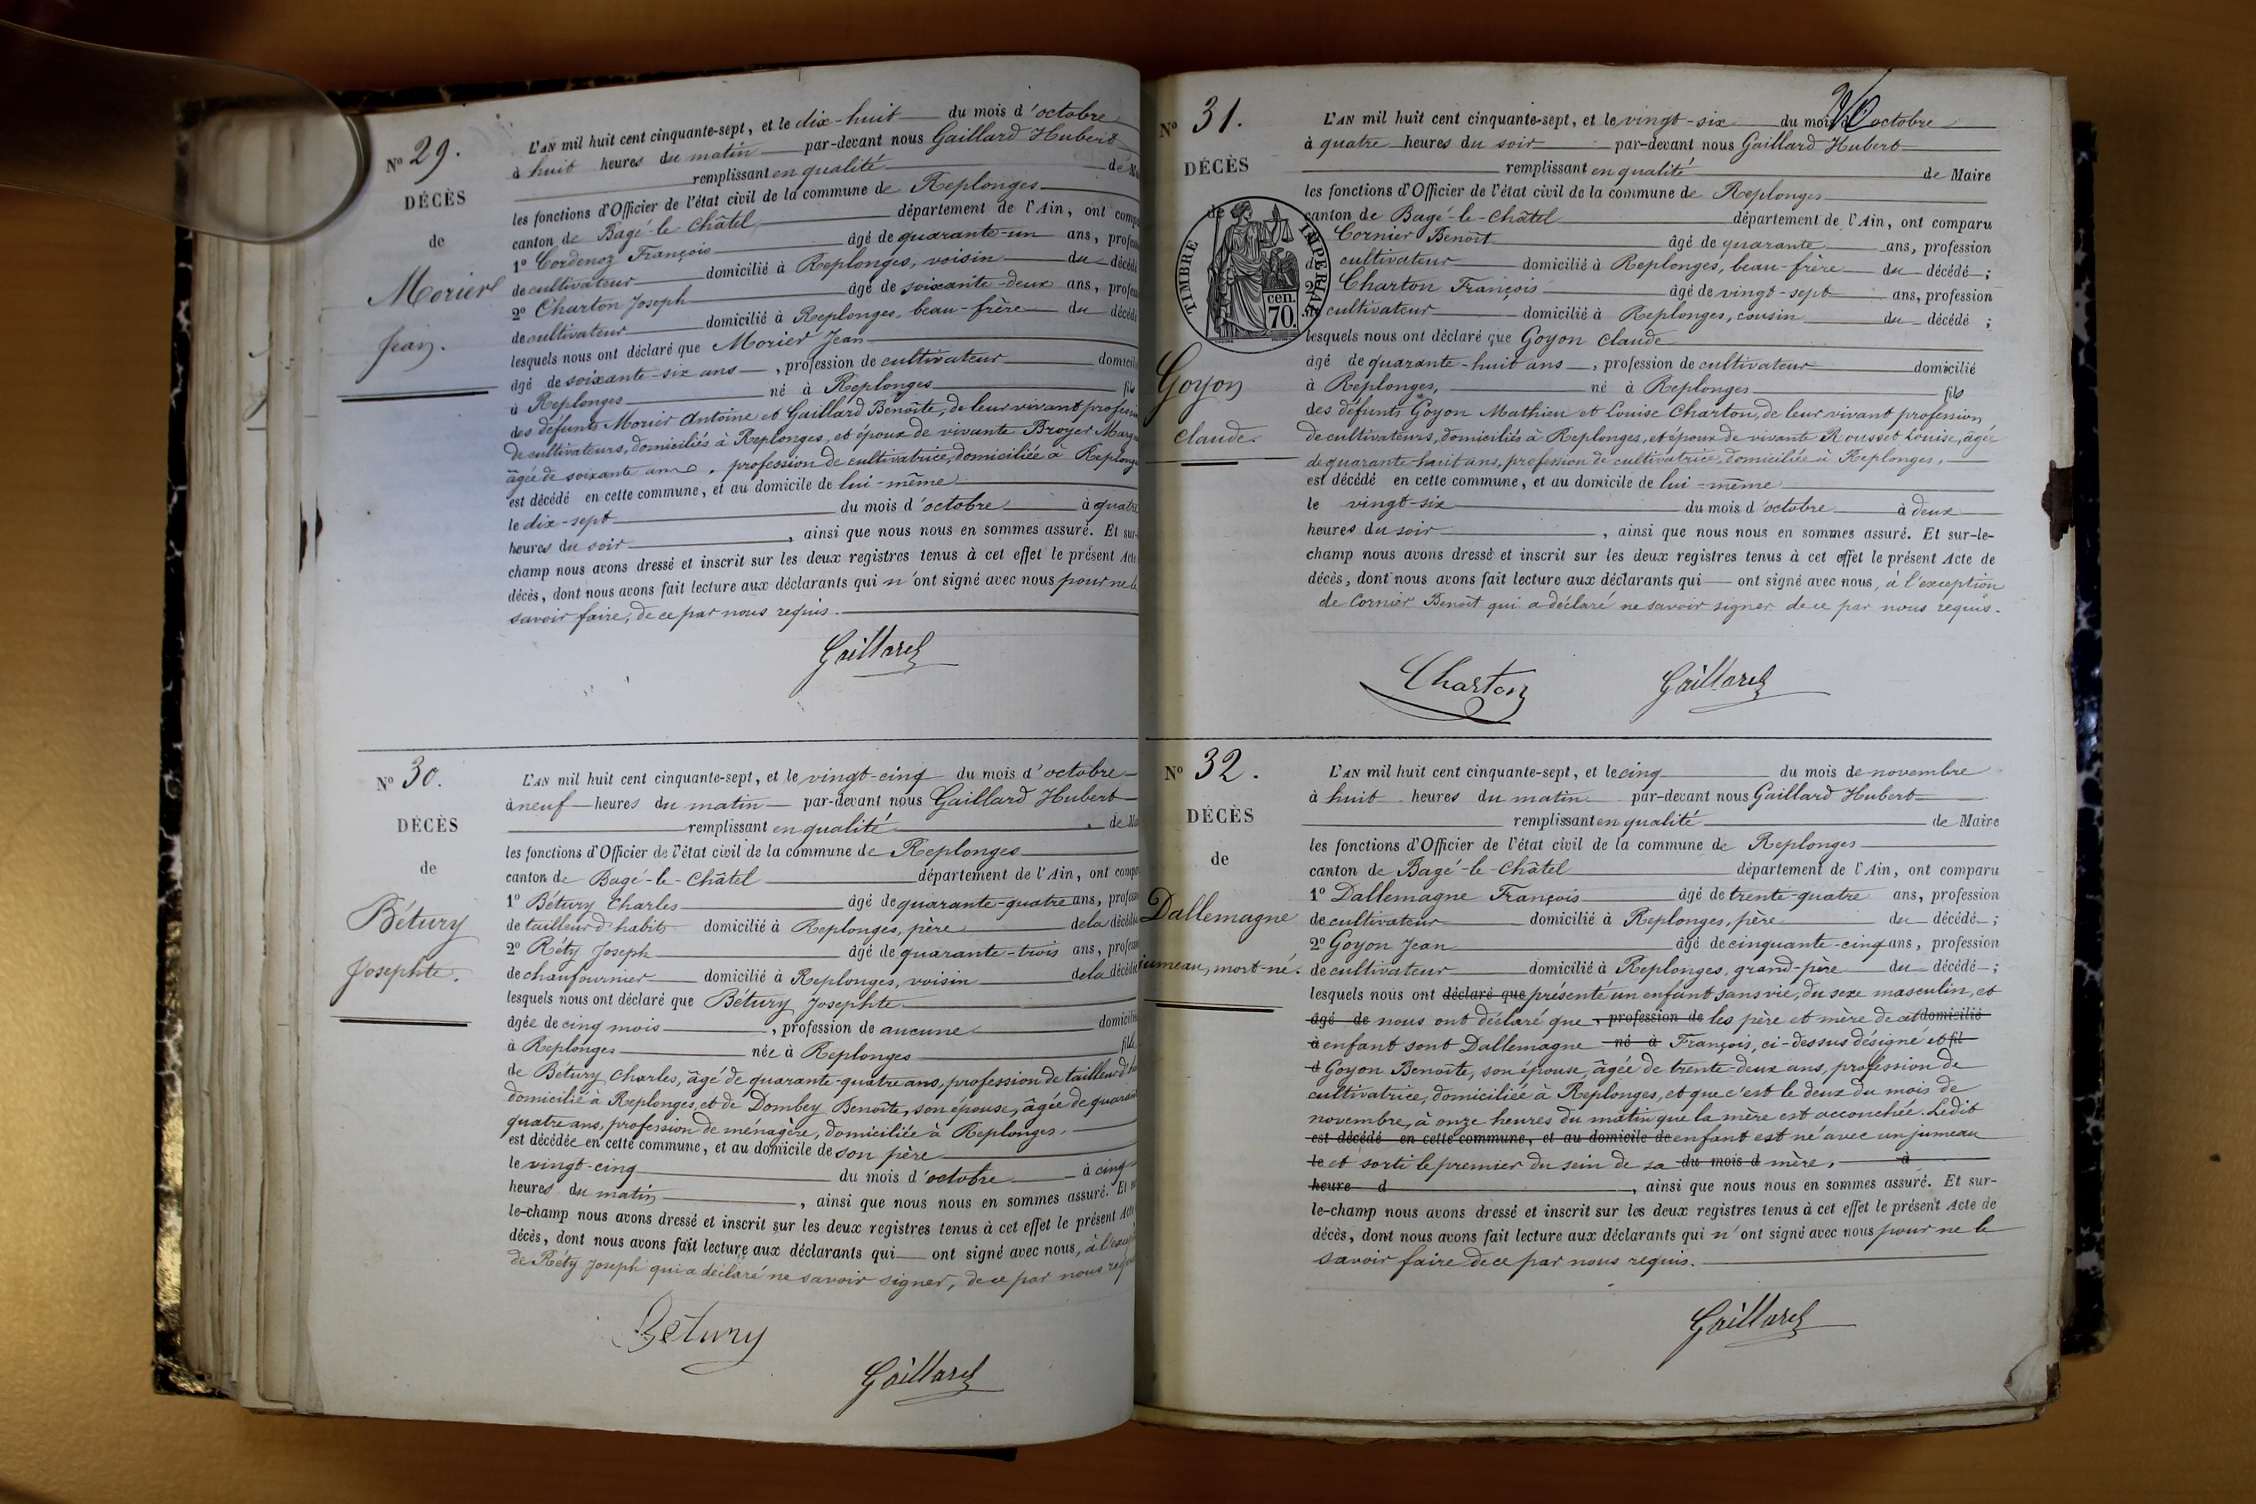 Nº 29.
DÉCÈS
de
Morier
Jean.
L'AN mil huit cent cinquante-sept, et le dix-huit du mois d'octobre
à huit heures du matin par-devant nous Gaillard Hubert
remplissant en qualité de
les fonctions d'Officier de l'état civil de la commune de Replonges
canton de Bagé-le-Châtel département de l'Ain, ont
1º Cordenoz François âgé de quarante-un ans,
de cultivateur domicilié à Replonges, voisin du décédé
2º Charton Joseph âgé de soixante-deux ans,
de cultivateur domicilié à Replonges, beau-frère du décédé
lesquels nous ont déclaré que Morier Jean
âgé de soixante-six ans, profession de cultivateur
à Replonges né à Replonges fils
des défunts Morier Antoine et Gaillard Benoîte, de leur vivant
de cultivateurs, domiciliés à Replonges, et époux de vivante Broyer
âgée de soixante ans, profession de cultivatrice, domiciliée à
est décédé en cette commune, et au domicile de lui-même
le dix-sept du mois d'octobre à quatre
heures du soir, ainsi que nous nous en sommes assuré. Et sur-
champ nous avons dressé et inscrit sur les deux registres tenus à cet effet le présent Acte
décès, dont nous avons fait lecture aux déclarants qui n'ont signé avec nous pour ne le
savoir faire, de ce par nous requis.
Gaillard
Nº 30.
DÉCÈS
de
Bétury
Josephte.
L'AN mil huit cent cinquante-sept, et le vingt-cinq du mois d'octobre
à neuf heures du matin par-devant nous Gaillard Hubert
remplissant en qualité de
les fonctions d'Officier de l'état civil de la commune de Replonges
canton de Bagé-le-Châtel département de l'Ain, ont
1º Bétury Charles âgé de quarante-quatre ans,
de tailleur d'habits domicilié à Replonges, père de la
2º Réty Joseph âgé de quarante-trois ans,
de chaufournier domicilié à Replonges, voisin de la
lesquels nous ont déclaré que Bétury Josephte
âgée de cinq mois, profession de aucune
à Replonges née à Replonges
de Bétury Charles, âgé de quarante-quatre ans, profession de tailleur
domicilié à Replonges, et de Dombey Benoîte, son épouse, âgée de
quatre ans, profession de ménagère, domiciliée à Replonges.
est décédée en cette commune, et au domicile de son père
le vingt-cinq du mois d'octobre à cinq
heures du matin, ainsi que nous nous en sommes assuré. Et
le-champ nous avons dressé et inscrit sur les deux registres tenus à cet effet le présent Acte
décès, dont nous avons fait lecture aux déclarants qui ont signé avec nous, à
de Réty Joseph qui a déclaré ne savoir signer, de ce par nous
Bétury
Gaillard
Nº 31.
DÉCÈS
de
TIMBRE IMPÉRIAL
70. cen.
Goyon
Claude.
L'AN mil huit cent cinquante-sept, et le vingt-six du mois d'octobre
à quatre heures du soir par-devant nous Gaillard Hubert
remplissant en qualité de Maire
les fonctions d'Officier de l'état civil de la commune de Replonges
canton de Bagé-le-Châtel département de l'Ain, ont comparu
Cornier Benoît âgé de quarante ans, profession
de cultivateur domicilié à Replonges, beau-frère du décédé ;
2º Charton François âgé de vingt-sept ans, profession
de cultivateur domicilié à Replonges, cousin du décédé ;
lesquels nous ont déclaré que Goyon Claude
âgé de quarante-huit ans, profession de cultivateur domicilié
à Replonges, né à Replonges fils
des défunts Goyon Mathieu et Louise Charton, de leur vivant profession
de cultivateurs, domiciliés à Replonges, et époux de vivante Rousset Louise, âgée
de quarante-huit ans, profession de cultivatrice, domiciliée à Replonges.
est décédé en cette commune, et au domicile de lui-même
le vingt-six du mois d'octobre à deux
heures du soir, ainsi que nous nous en sommes assuré. Et sur-le-
champ nous avons dressé et inscrit sur les deux registres tenus à cet effet le présent Acte de
décès, dont nous avons fait lecture aux déclarants qui ont signé avec nous, à l'exception
de Cornier Benoît qui a déclaré ne savoir signer de ce par nous requis.
Charton
Gaillard
Nº 32.
DÉCÈS
de
Dallemagne
jumeau, mort-né.
L'AN mil huit cent cinquante-sept, et le cinq du mois de novembre
à huit heures du matin par-devant nous Gaillard Hubert
remplissant en qualité de Maire
les fonctions d'Officier de l'état civil de la commune de Replonges
canton de Bagé-le-Châtel département de l'Ain, ont comparu
1º Dallemagne François âgé de trente-quatre ans, profession
de cultivateur domicilié à Replonges, père du décédé ;
2º Goyon Jean âgé de cinquante-cinq ans, profession
de cultivateur domicilié à Replonges, grand-père du décédé ;
lesquels nous ont déclaré que présenté un enfant sans vie, du sexe masculin, et
âgé de nous ont déclaré que , profession de les père et mère de cet domicilié
à enfant sont Dallemagne né à François, ci-dessus désigné et fil
d Goyon Benoîte, son épouse, âgée de trente-deux ans, profession de
cultivatrice, domiciliée à Replonges, et que c'est le deux du mois de
novembre, à onze heures du matin que la mère est accouchée. Ledit
est décédé en cette commune, et au domicile de enfant est né avec un jumeau
le et sorti le premier du sein de sa du mois d mère, à
heure d , ainsi que nous nous en sommes assuré. Et sur-
le-champ nous avons dressé et inscrit sur les deux registres tenus à cet effet le présent Acte de
décès, dont nous avons fait lecture aux déclarants qui n'ont signé avec nous pour ne le
savoir faire de ce par nous requis.
Gaillard